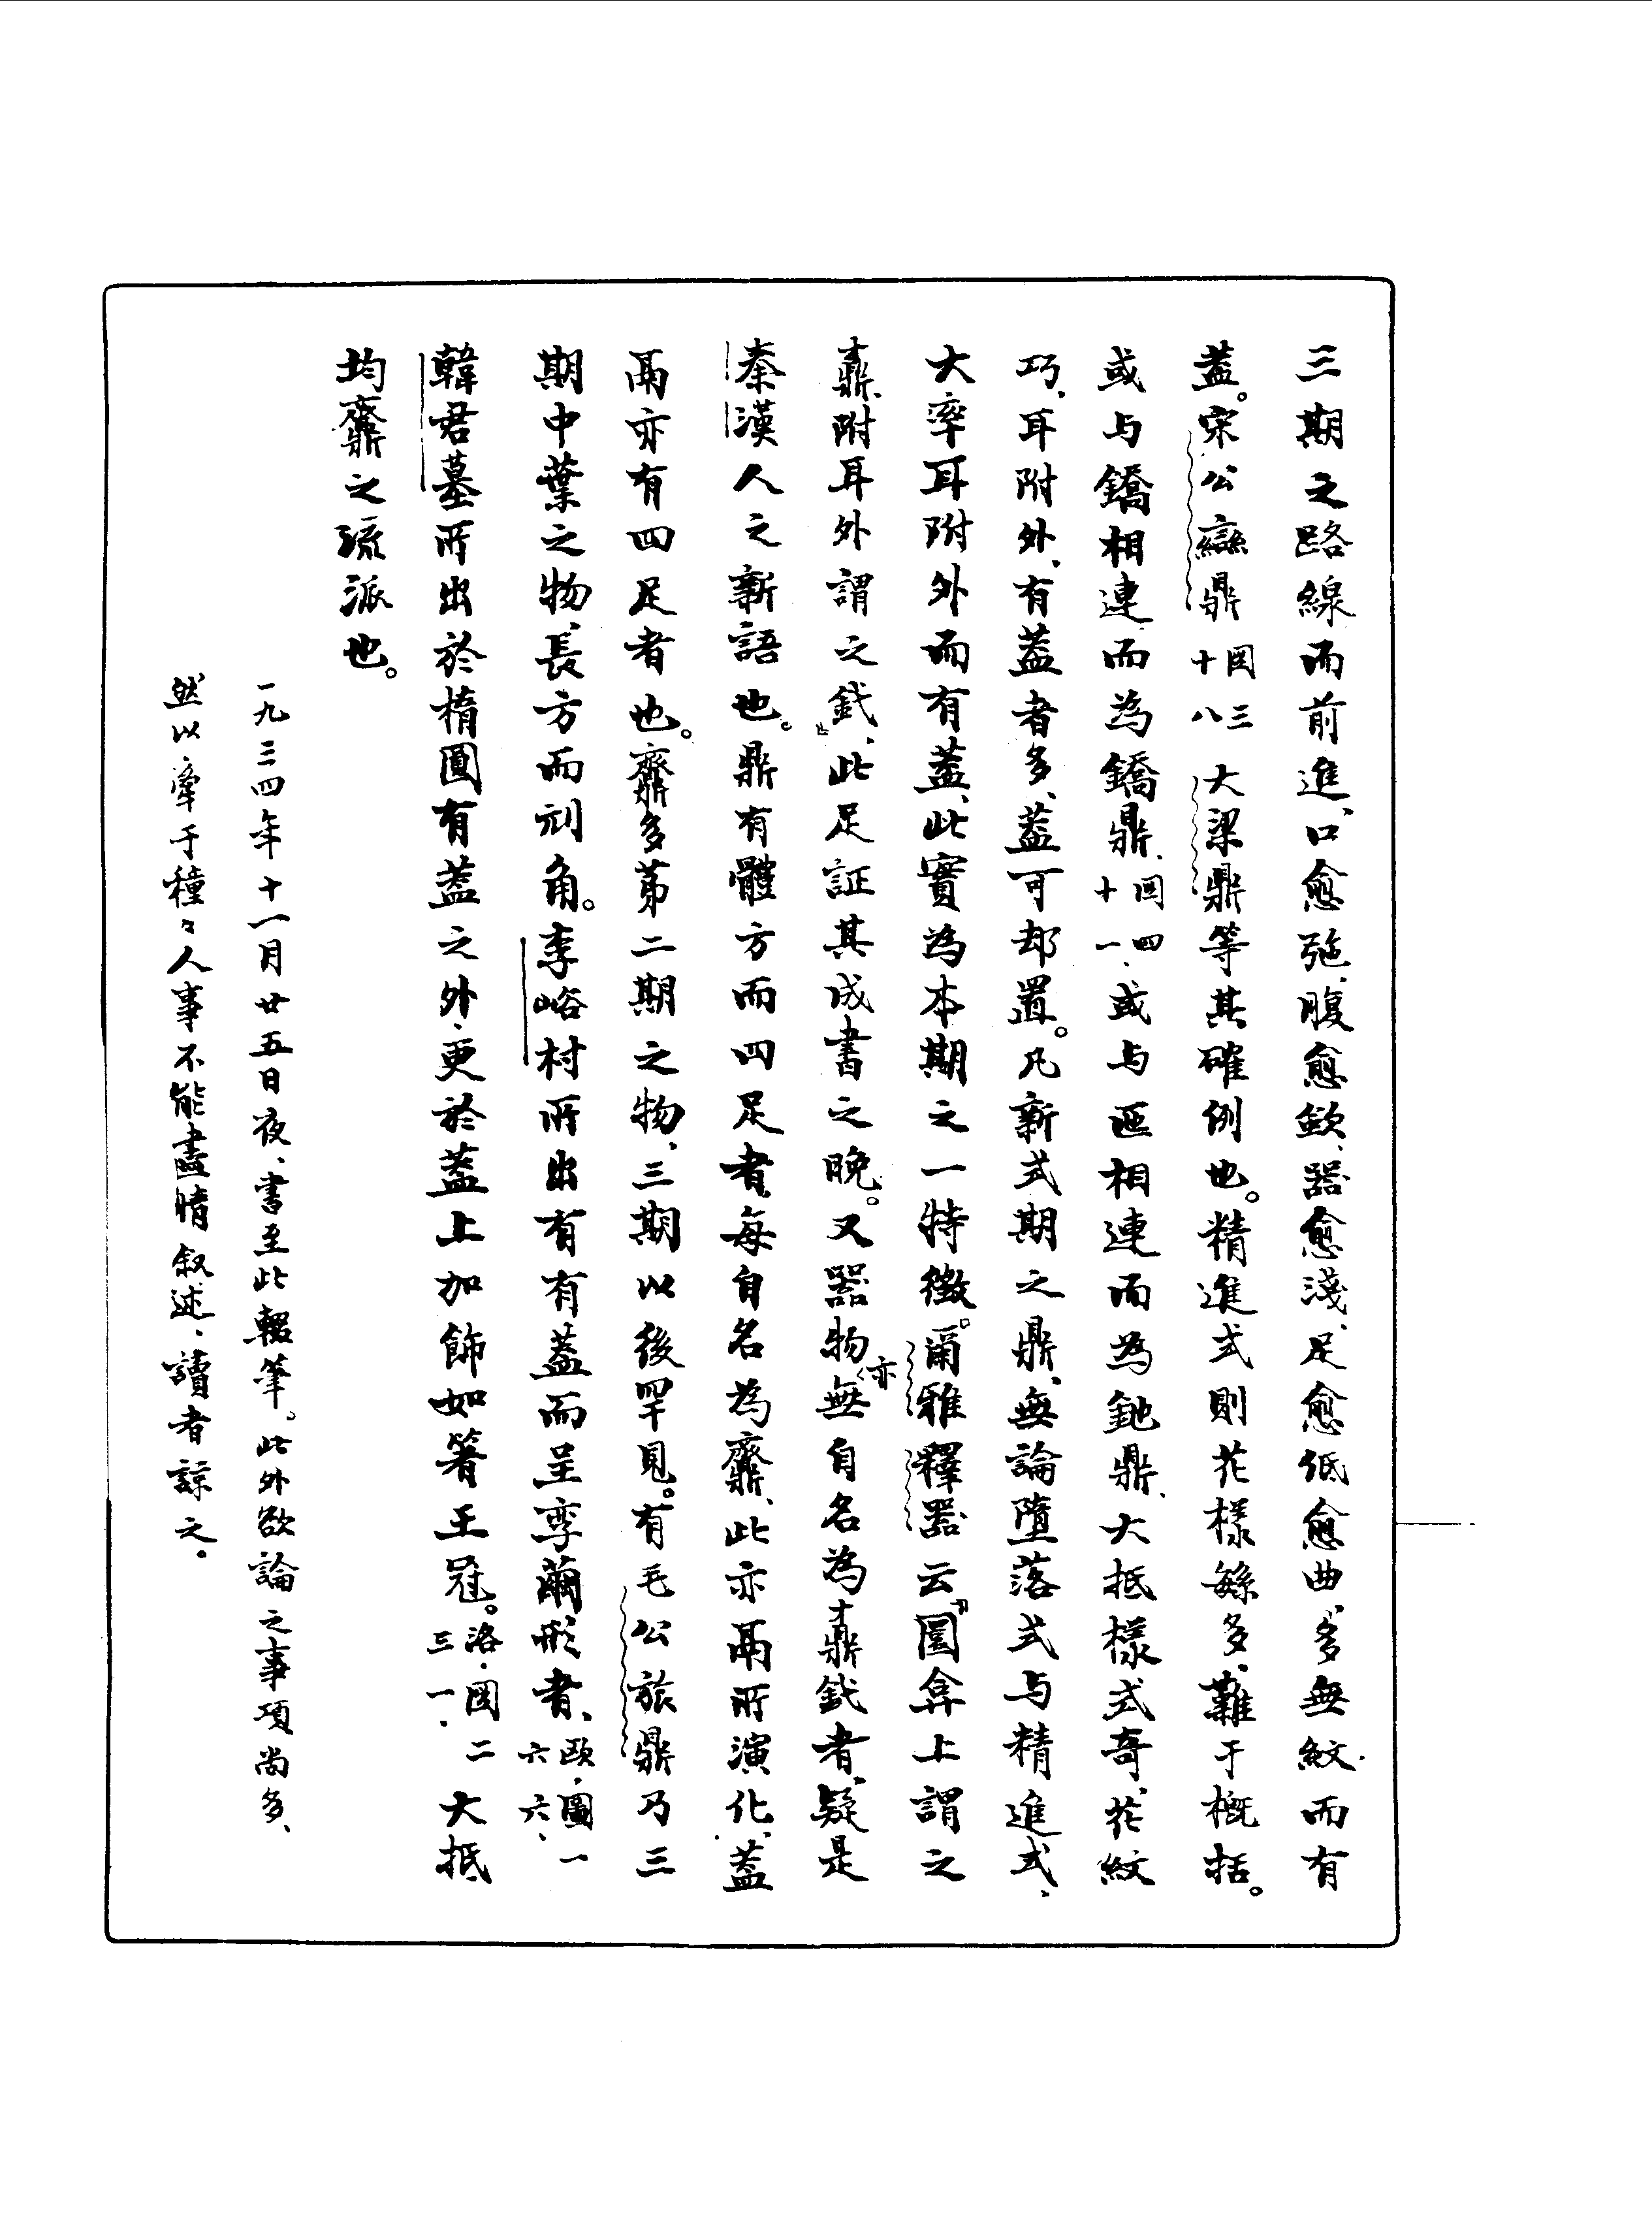 三期之路線而前進、口愈弛、腹愈歛、器愈淺、足愈低愈曲、多無紋而有
蓋。宋公欒鼎圖三十八大梁鼎等其確例也。精進式則花樣繁多、難于概括。
或与鐈相連而為鐈鼎、圖四十一、或与匜相連而為鉈鼎、大抵樣式奇、花紋
巧、耳附外、有蓋者多、蓋可却置。凡新式期之鼎、無論墮落式与精進式、
大率耳附外而有蓋、此實為本期之一特徵。爾雅釋器云『圜弇上謂之
鼒、附耳外謂之釴』、此足証其成書之晚。又器物亦無自名為鼒釴者、疑是
秦漢人之新語也。鼎有體方而四足者、每自名為齍、此亦鬲所演化、蓋
鬲亦有四足者也。齍多第二期之物、三期以後罕見。有毛公旅鼎乃三
期中葉之物、長方而刓角。李峪村所出有有蓋而呈孿繭形者、歐·圖一六六、
韓君墓所出於橢圓有蓋之外、更於蓋上加飾如箸王冠。洛·圖二三一·大抵
均齍之流派也。
一九三四年十一月廿五日夜、書至此輟筆。此外欲論之事項尚多、
然以牽于種々人事不能盡情叙述、讀者諒之。